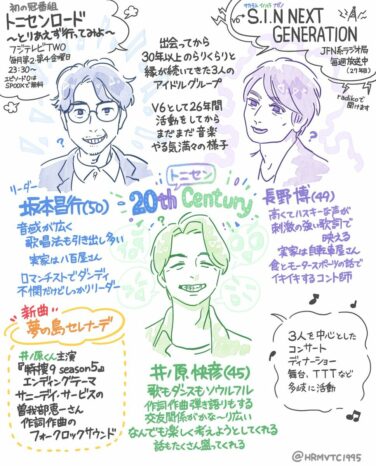 初の冠番組
トニセンロード
～とりあえず行ってみよ～
フジテレビTWO
毎月第2,第4金曜日
23:30～
SPOOXで無料
出会ってから
30年以上のらりくらりと
縁が続いてきた3人の
アイドルグループ
V6として26年間
活動をしてから
まだまだ音楽
やる気満々の様子
V6
S.I.N NEXT
GENERATION
JFN系ラジオ局
毎週放送中
(27年目)
radikoで
聞けます
リーダー
坂本昌行(50)
音感が広く
歌唱法も引き出し多い
実家は八百屋さん
ロマンチストでダンディ
不憫だけどしっかりリーダー
トニセン
20th Century
長野博(49)
高くてハスキーな声が
刺激の強い歌詞で
映える
実家は自転車屋さん
食とモータースポーツの話で
イキイキするコント師
新曲
夢の島セレナーデ
井ノ原くん主演
『特捜9 season5』
エンディングテーマ
サニーデイ・サービスの
曽我部恵一さん
作詞作曲の
フォークロックサウンド
井ノ原快彦(45)
歌もダンスもソウルフル
作詞作曲弾き語りもする
交友関係がかな～り広い
なんでも楽しく考えようとしてくれる
話もたくさん盛ってくれる
3人を中心とした
コンサート
ディナーショー
舞台、TTTなど
多岐に活動
@HRMYTC1995